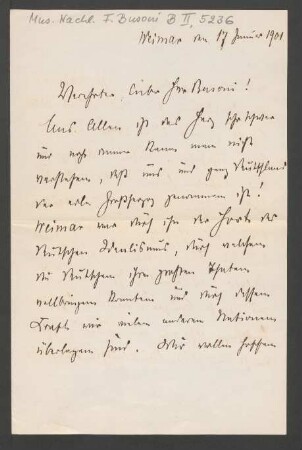 Mus. Nachl. F. Busoni B II, 5236
Weimar den 17 Januar 1901
Verehrter, lieber Herr Busoni!
Uns Allen ist das Herz sehr schwer
und noch immer kann man nicht
verstehen, daß uns und ganz Deutschland
der edle Großherzog genommen ist!
Weimar war durch ihn der Hort des
Deutschen Idealismus, durch welchen
die Deutschen ihre größten Thaten
vollbringen konnten und durch dessen
Kraft wir vielen anderen Nationen
überlegen sind. Wir wollen hoffen